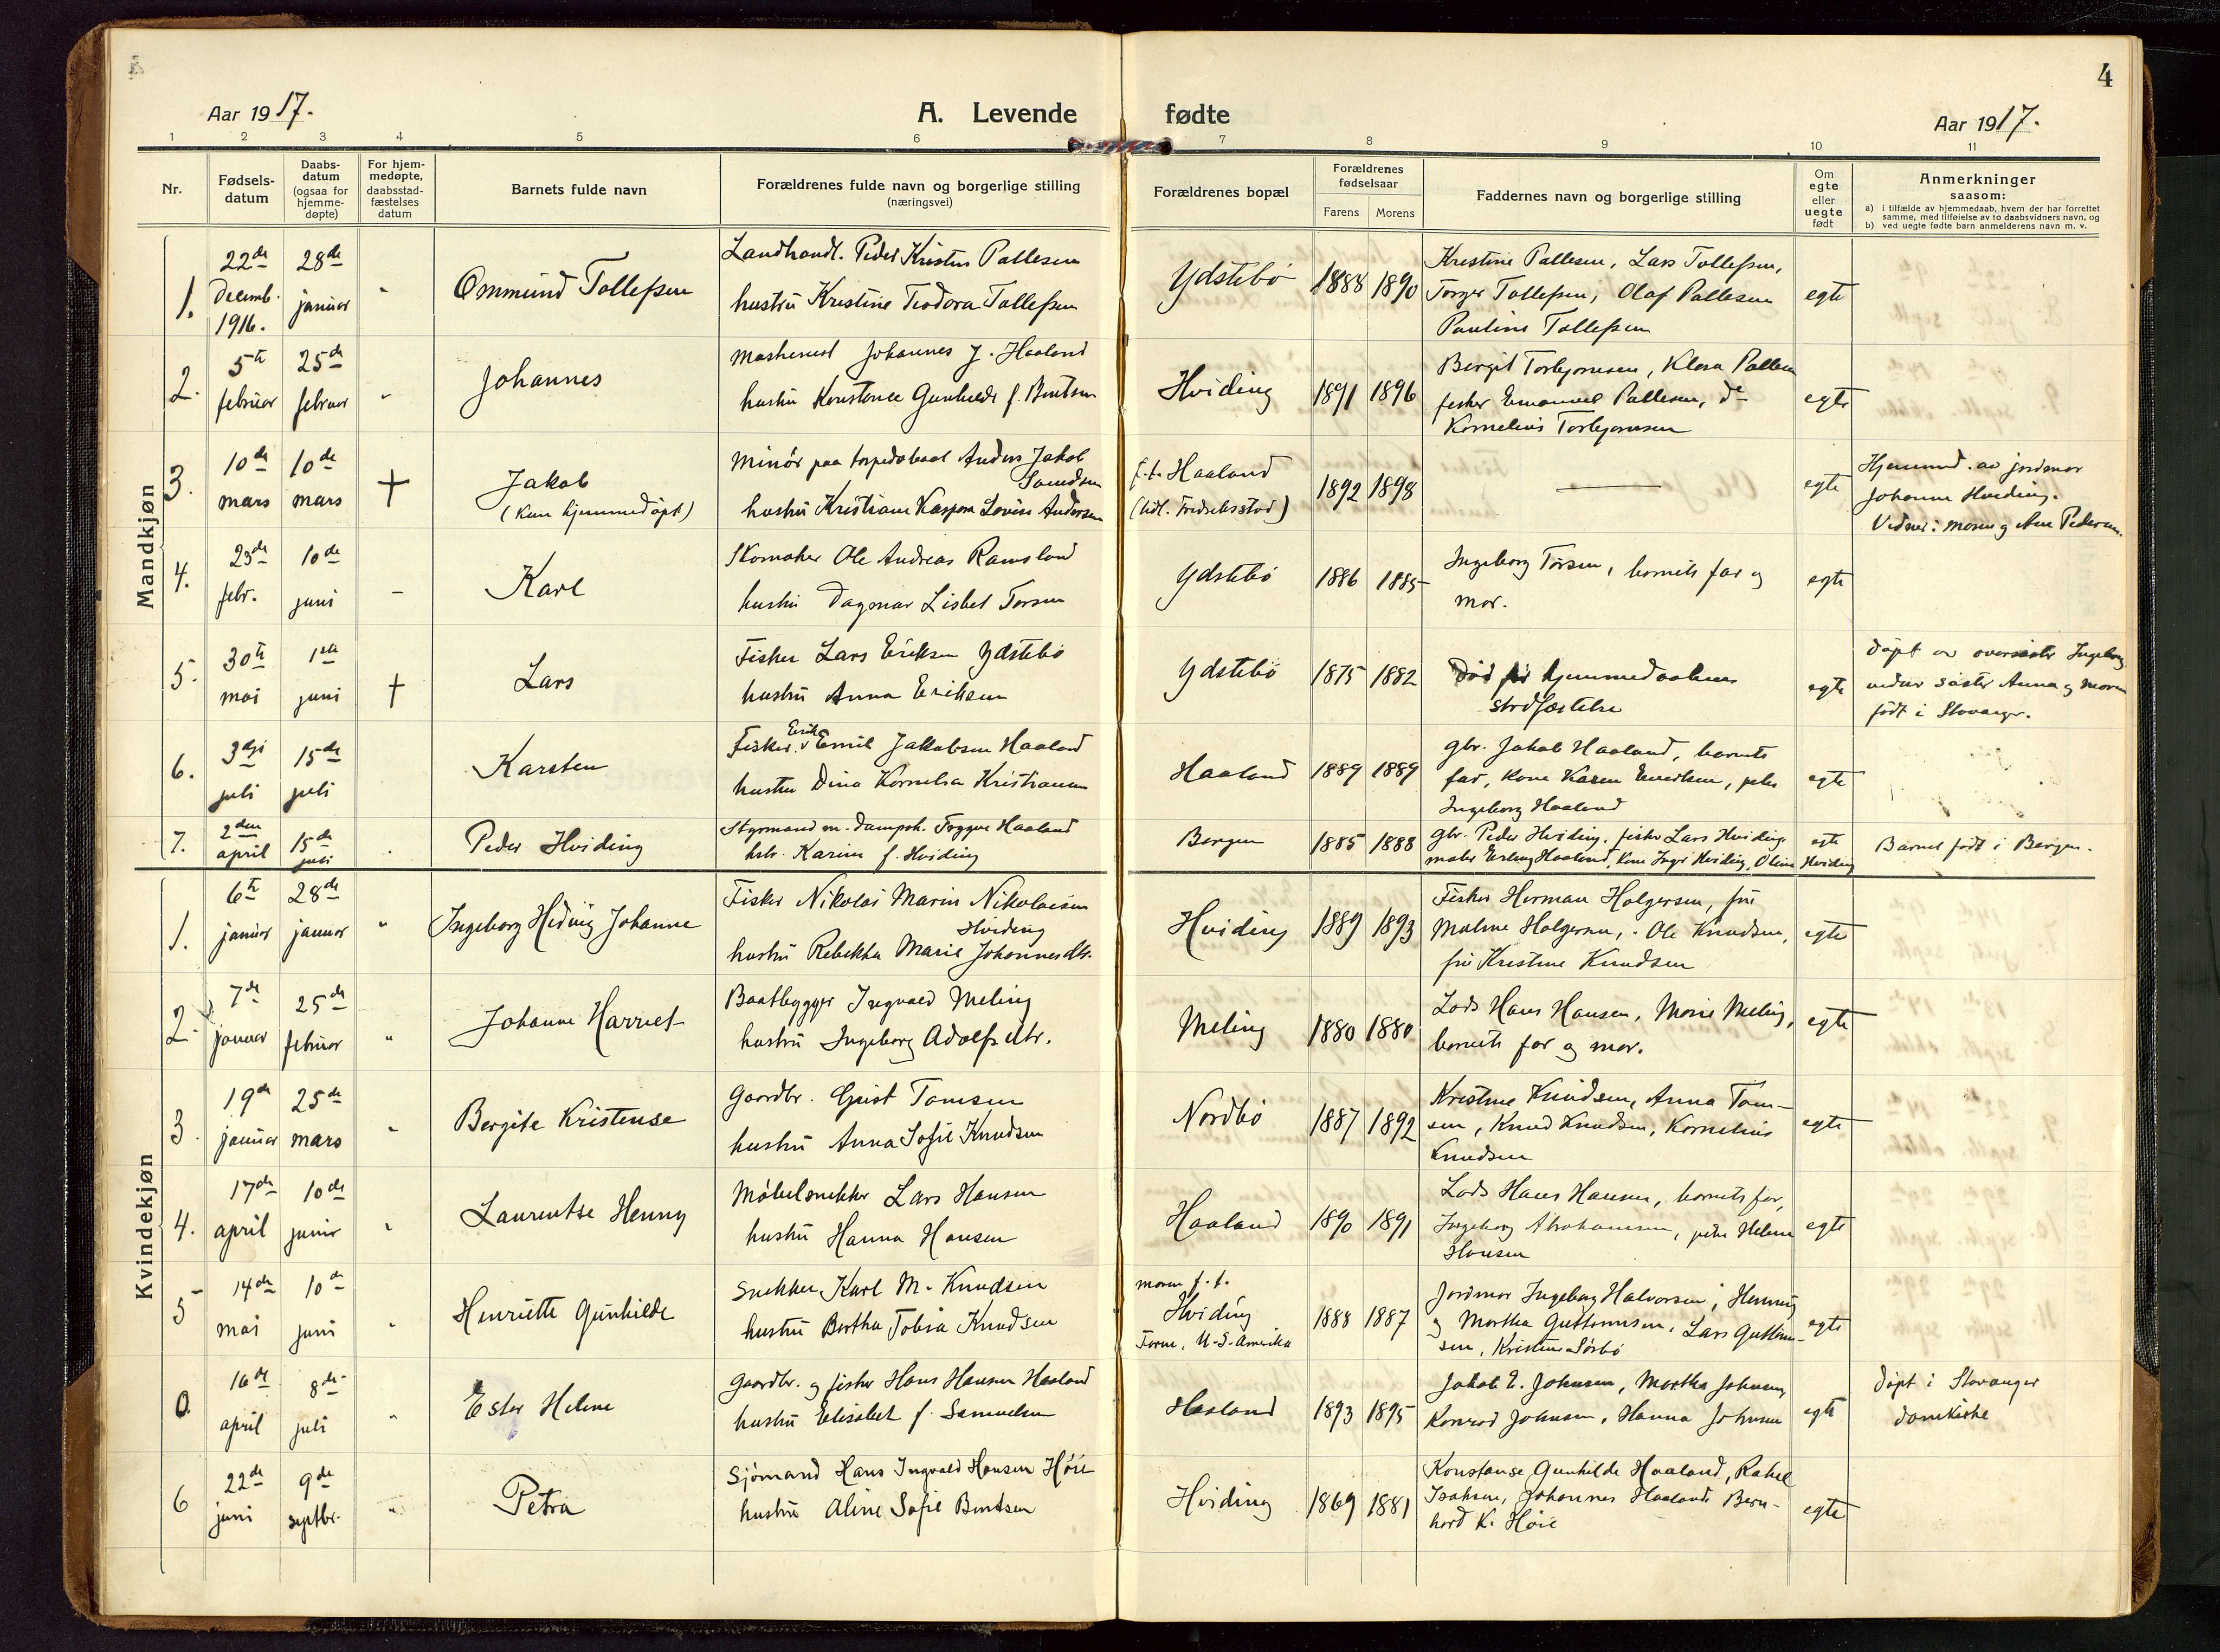 4
Aar 1917.
A. Levende fødte
Aar 1917.
1 2 3 4 5 6 7 8 9 10 11
Nr.
Fødsels-
datum
Daabs-
datum
(ogsaa for
hjemme-
døpte)
For hjem-
medøpte,
daabsstad-
fæstelses
datum
Barnets fulde navn
Forældrenes fulde navn og borgerlige stilling
(næringsvei)
Forældrenes bopæl
Forældrenes
fødselsaar
Farens Morens
Faddernes navn og borgerlige stilling
Om
egte
eller
uegte
født
Anmerkninger
saasom:
a) i tilfælde av hjemmedaab, hvem der har forrettet
samme, med tilføielse av to daabsvidners navn, og
b) ved uegte fødte barn anmelderens navn m. v.
Mandkjøn
1.
22de
Decemb.
1916.
28de
januar
"
Ommund Tollefsen
Landhandl. Peder Kristus Pallesen
hustru Kristine Teodora Tollefsen
Ydstebö
1888 1890
Kristine Pallesen, Lars Tollefsen,
Torger Tollefsen, Olaf Pallesen
Pauline Tollefsen
egte
2.
5te
februar
25de
februar
"
Johannes
Maskinist Johannes J. Haaland
hustru Konstanse Gunhilde f. Bentsen
Hviding
1891 1896
Bergit Torbjornsen, Klara Pallesen
fisker Emanuel Pallesen, do
Kornelius Torbjornsen
egte
3.
10de
mars
10de
mars
†
Jakob
(kun hjemmedöpt)
Minör paa torpedobaat Anders Jakob
Svendsen
hustru Kristiane Kaspara Lovise Andersen
f.t. Haaland
(tidl. Fredriksstad)
1892 1898
—
egte
Hjemmed. av jordmor
Johanne Hviding.
Vidner: moren og Ane Pedersen.
4.
23de
febr.
10de
juni
–
Karl
Skomaker Ole Andreas Ramsland
hustru Dagmar Lisbet Torsen
Ydstebö
1886 1885
Ingeborg Torsen, barnets far og
mor.
egte
5.
30te
mai
1ste
juni
†
Lars
Fisker Lars Eriksen Ydstebö
hustru Anna Eriksen
Ydstebö
1875 1882
Död för hjemmedaabens
stadfæstelse
egte
döpt av oversöster Ingeborg
vidner söster Anna og moren
födt i Stavanger.
6.
3dje
juli
15de
juli
Karsten
Erik
Fisker Emil Jakobsen Haaland
hustru Dina Kornelia Kristiansen
Haaland
1889 1889
gbr. Jakob Haaland, barnets
far, kone Karen Enertsen, pike
Ingeborg Haaland
egte
7.
2den
april
15de
juli
.
Peder Hviding
Styrmand m. dampsk. Trygve Haaland
hstr. Karine f. Hviding
Bergen
1885 1888
gbr. Peder Hviding, fisker Lars Hviding,
maler Erling Haaland, kone Inger Hviding, Oline Hviding
egte
Barnet födt i Bergen.
Kvindekjøn
1.
6te
januar
28de
januar
"
Ingeborg Hedvig Johanne
Fisker Nikolai Marin Nikolaisen
Hviding
hustru Rebekka Marie Johannesdtr.
Hviding
1889 1893
Fisker Herman Holgersen, fru
Malene Holgersen, Ole Knudsen,
fru Kristine Knudsen
egte
2.
7de
januar
25de
februar
"
Johanne Harriet
Baatbygger Ingvald Meling
hustru Ingeborg Adolfsdtr.
Meling
1880 1880
Lods Hans Hansen, Marie Meling,
barnets far og mor.
egte
3.
19de
januar
25de
mars
"
Bergite Kristense
Gaardbr. Gjest Tomsen
hustru Anna Sofie Knudsen
Nordbö
1887 1892
Kristine Knudsen, Anna Tom-
sen, Knud Knudsen, Kornelius
Knudsen
egte
4.
17de
april
10de
juni
"
Laurentse Henny
Möbelsnekker Lars Hansen
hustru Hanna Hansen
Haaland
1890 1891
Lods Hans Hansen, barnets far,
Ingeborg Abrahamsen, pike Helene
Hansen
egte
5
14de
mai
10de
juni
"
Henriette Gunhilde
Snekker Karl M. Knudsen
hustru Bertha Tobia Knudsen
moren f.t.
Hviding
Faren, U-S-Amerika
1888 1887
Jordmor Ingeborg Halvorsen, Henning
og Martha Guttormsen, Lars Guttorm-
sen, Kristine Sörbö
egte
0.
16de
april
8de
juli
"
Ester Helene
Gaardbr. og fisker Hans Hansen Haaland
hustru Elisabet f. Samuelsen
Haaland
1893 1895
Jakob E. Johnsen, Martha Johnsen,
Konrad Johnsen, Hanna Johnsen
egte
döpt i Stavanger
domkirke
6
22de
juni
9de
septbr.
"
Petra
Sjömand Hans Ingvald Hansen Höie
hustru Aline Sofie Bentsen
Hviding
1869 1881
Konstanse Gunhilde Haaland, Rakel
Isaksen, Johannes Haaland, Bern-
hard K. Höie
egte